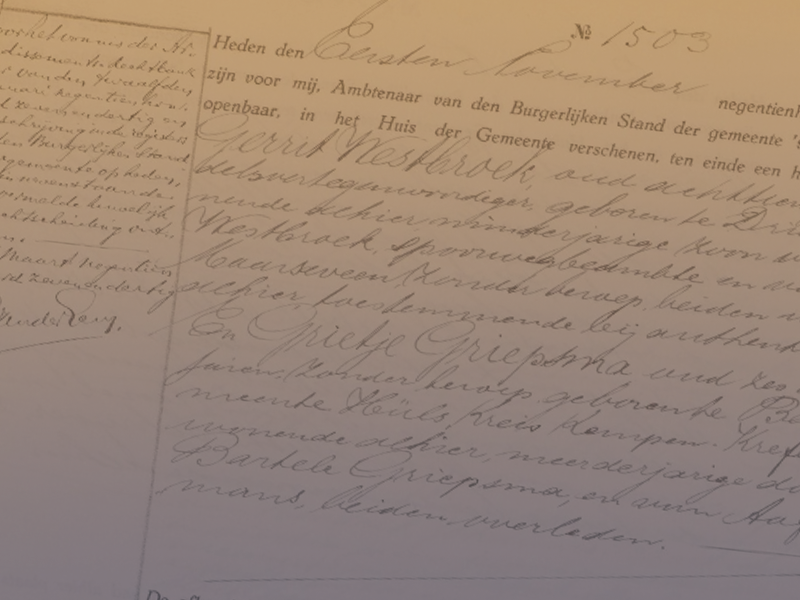 voor het vonnis der Ar.
dissements Rechtbank
van den
januari negentien hon.
zeven en dertig en
inschrijving in de registers
den Burgerlijken Stand
gemeente op heden,
is nevenstaande.
vermelde huwelijk
echtscheiding ont..
Maart negentien
zeven en dertig
№ 1503
Heden den Eersten November negentienh
zijn voor mij, Ambtenaar van den Burgerlijken Stand der gemeente 's
openbaar, in het Huis der Gemeente verschenen, ten einde een h
Gerrit Westbroek, oud achttien
geboren te Dri
nende alhier minderjarige zoon v
Westbroek, spoorwegbeambte en
Maarseveen, zonder beroep, beiden
alhier toestemmende bij authent
En Grietje Griepsma oud zes
jaren, zonder beroep geboren te Be
meente Hüls, Kreis Kempen-Kref
wonende alhier, meerderjarige do
Bartele Griepsma, en van
mans, beiden overleden.